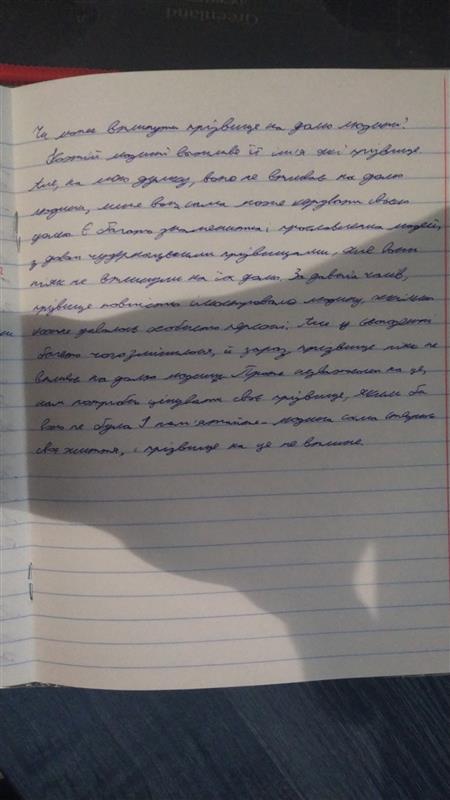 Greenland
Чи може вплинути прізвище на долю людини?
Кожній людині важливе її ім'я як і прізвище.
Але, на мою думку, воно не впливає на долю
людини, лише вона сама може керувати своєю
долею. Є багато знаменитих і прославлених людей,
з доволі чудернацькими прізвищами, але вони
ніяк не вплинули на їх долю. За давніх часів,
прізвище повністю ілюструвало людину, оскільки
кожне давалось особисто персоні. Але у сьогоденні
багато чого змінилося, й зараз прізвище ніяк не
впливає на долю людини. Проте незважаючи на це,
нам потрібно цінувати своє прізвище, яким би
воно не було. І пам'ятайте - людина сама створює
своє життя, і прізвище на це не вплине.